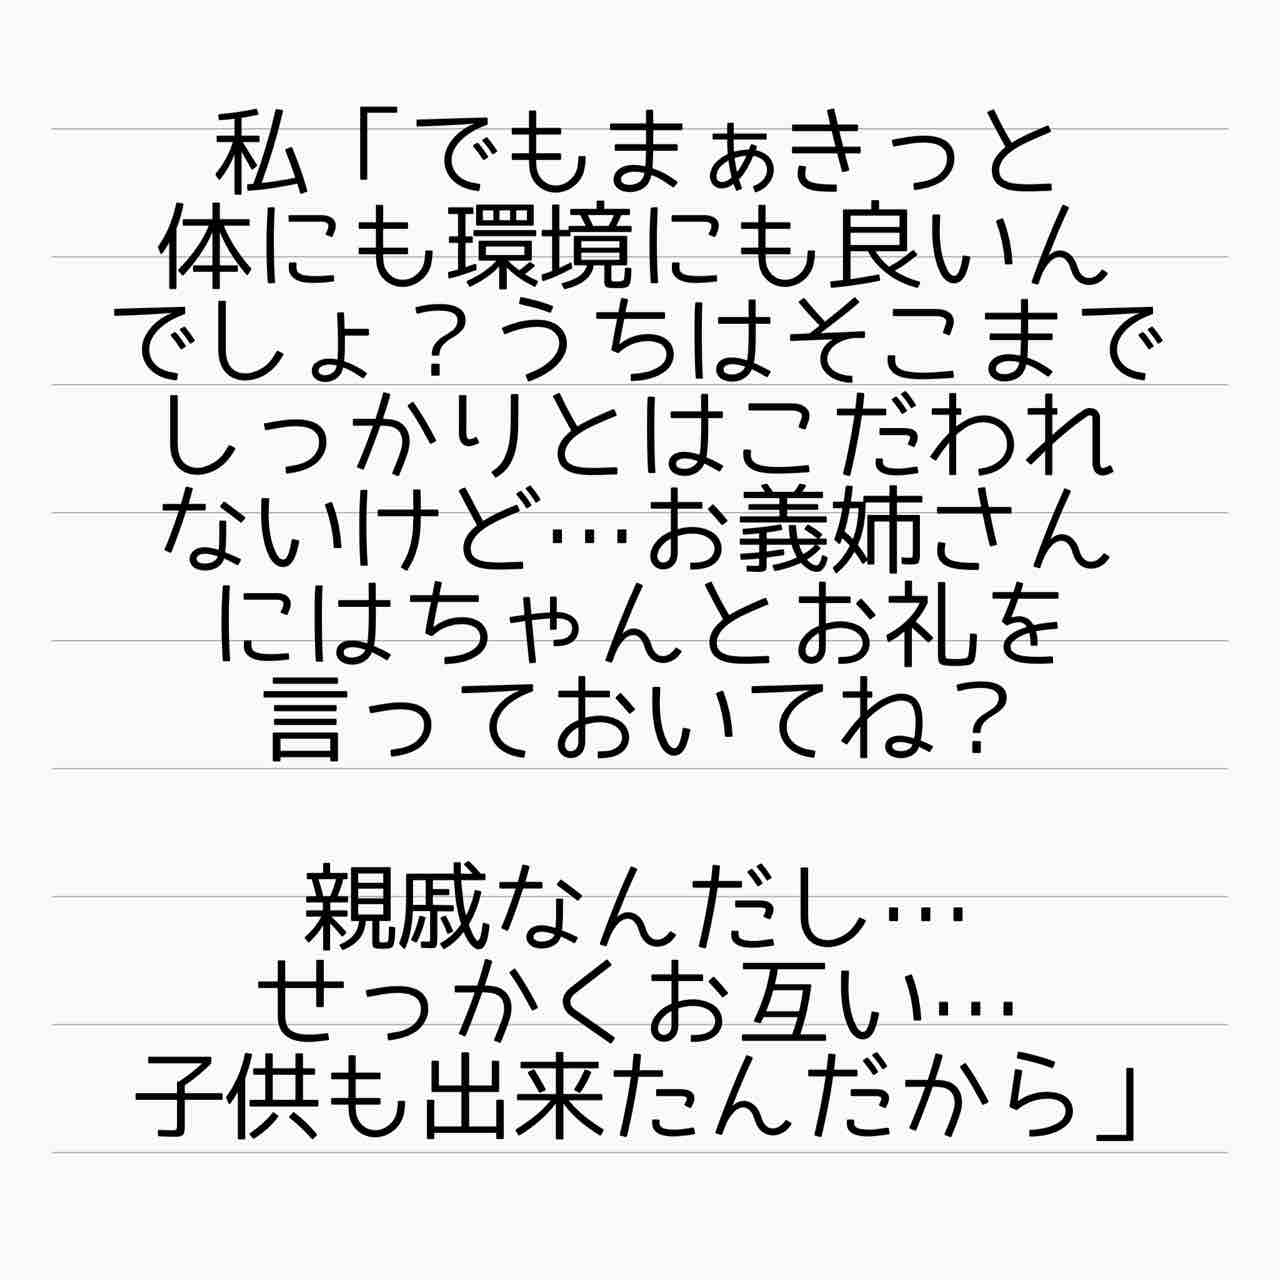 私「でもまぁきっと
体にも環境にも良いん
でしょ？うちはそこまで
しっかりとはこだわれ
ないけど…お義姉さん
にはちゃんとお礼を
言っておいてね？
親戚なんだし…
せっかくお互い…
子供も出来たんだから」